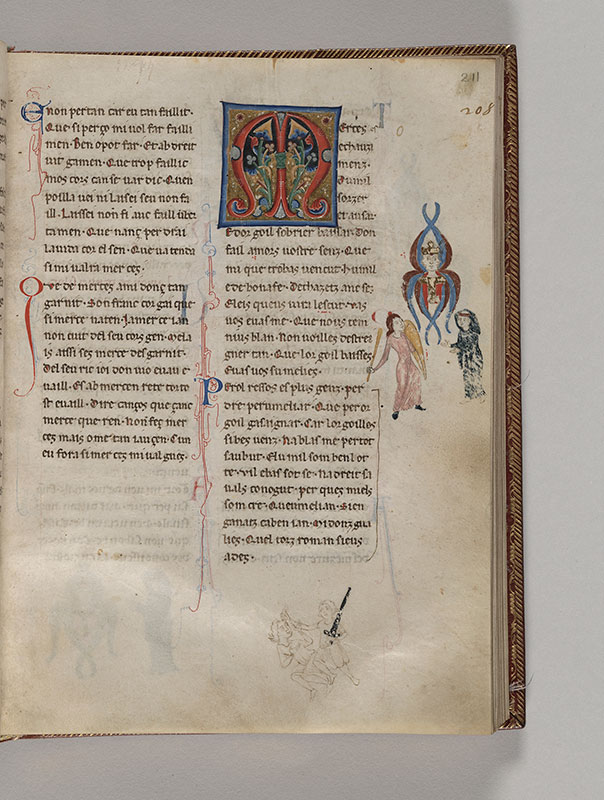 211
208
E non per tan car eu tan faillit.
Que si per ço mi uol far failli
men. Ben o pot far. Et ab dreit
iut gamen. Que trop faillic
mos cors can se uar dic. Quen
poilla uei ni Laisei sen non fa
ill. Laissei non fi
tamen. Que nanç per
Lautra cor el sen. Que ua tenda
si mi ualra mer ces.
Que de merces ami donç tan
garnit. Son franc cor gai que
si merce naten. Ia merce tan
non cuit del seu cors gen. Mela
is aissi seç merce des garnit.
Del seu ric ioi don mo euau e
uaill. Et ab mercen rete torto
st euaill. Dire cançes que çanc
merce que ren. Non feç mer
ces mais o me tam iauçen. Cun
eu fora si mer ces mi ual gues.
M
Erces
dechaua
menz.
Dumil
sorzer
et ausar
E dor goil sobrier baissar. Don
fail amors uostre senz. Que
mi que trobas uencut. humil
ede bonafe. Dechazetz anc ses.
E leis quens uira lescut. vas
ues euas me. Que nous tem
nius blan. Non uoilles destrei
gner tan. Que lor goil baisses
Euas ues sumelies.
Perol ressos es plus genz. per
dre per umeliar. Que per or
goil gasaignar. Car lor goillos
si bes uenz. Na blasme per tot
saubut. El umil som ben lor
te. vil elas sot se. Na dreit fa
uals conegut. per ques miels
som cre. Queumelian. Sien
ganatz caben ian. Mi donz gua
lies. Quel iorz roman sieus
ades.